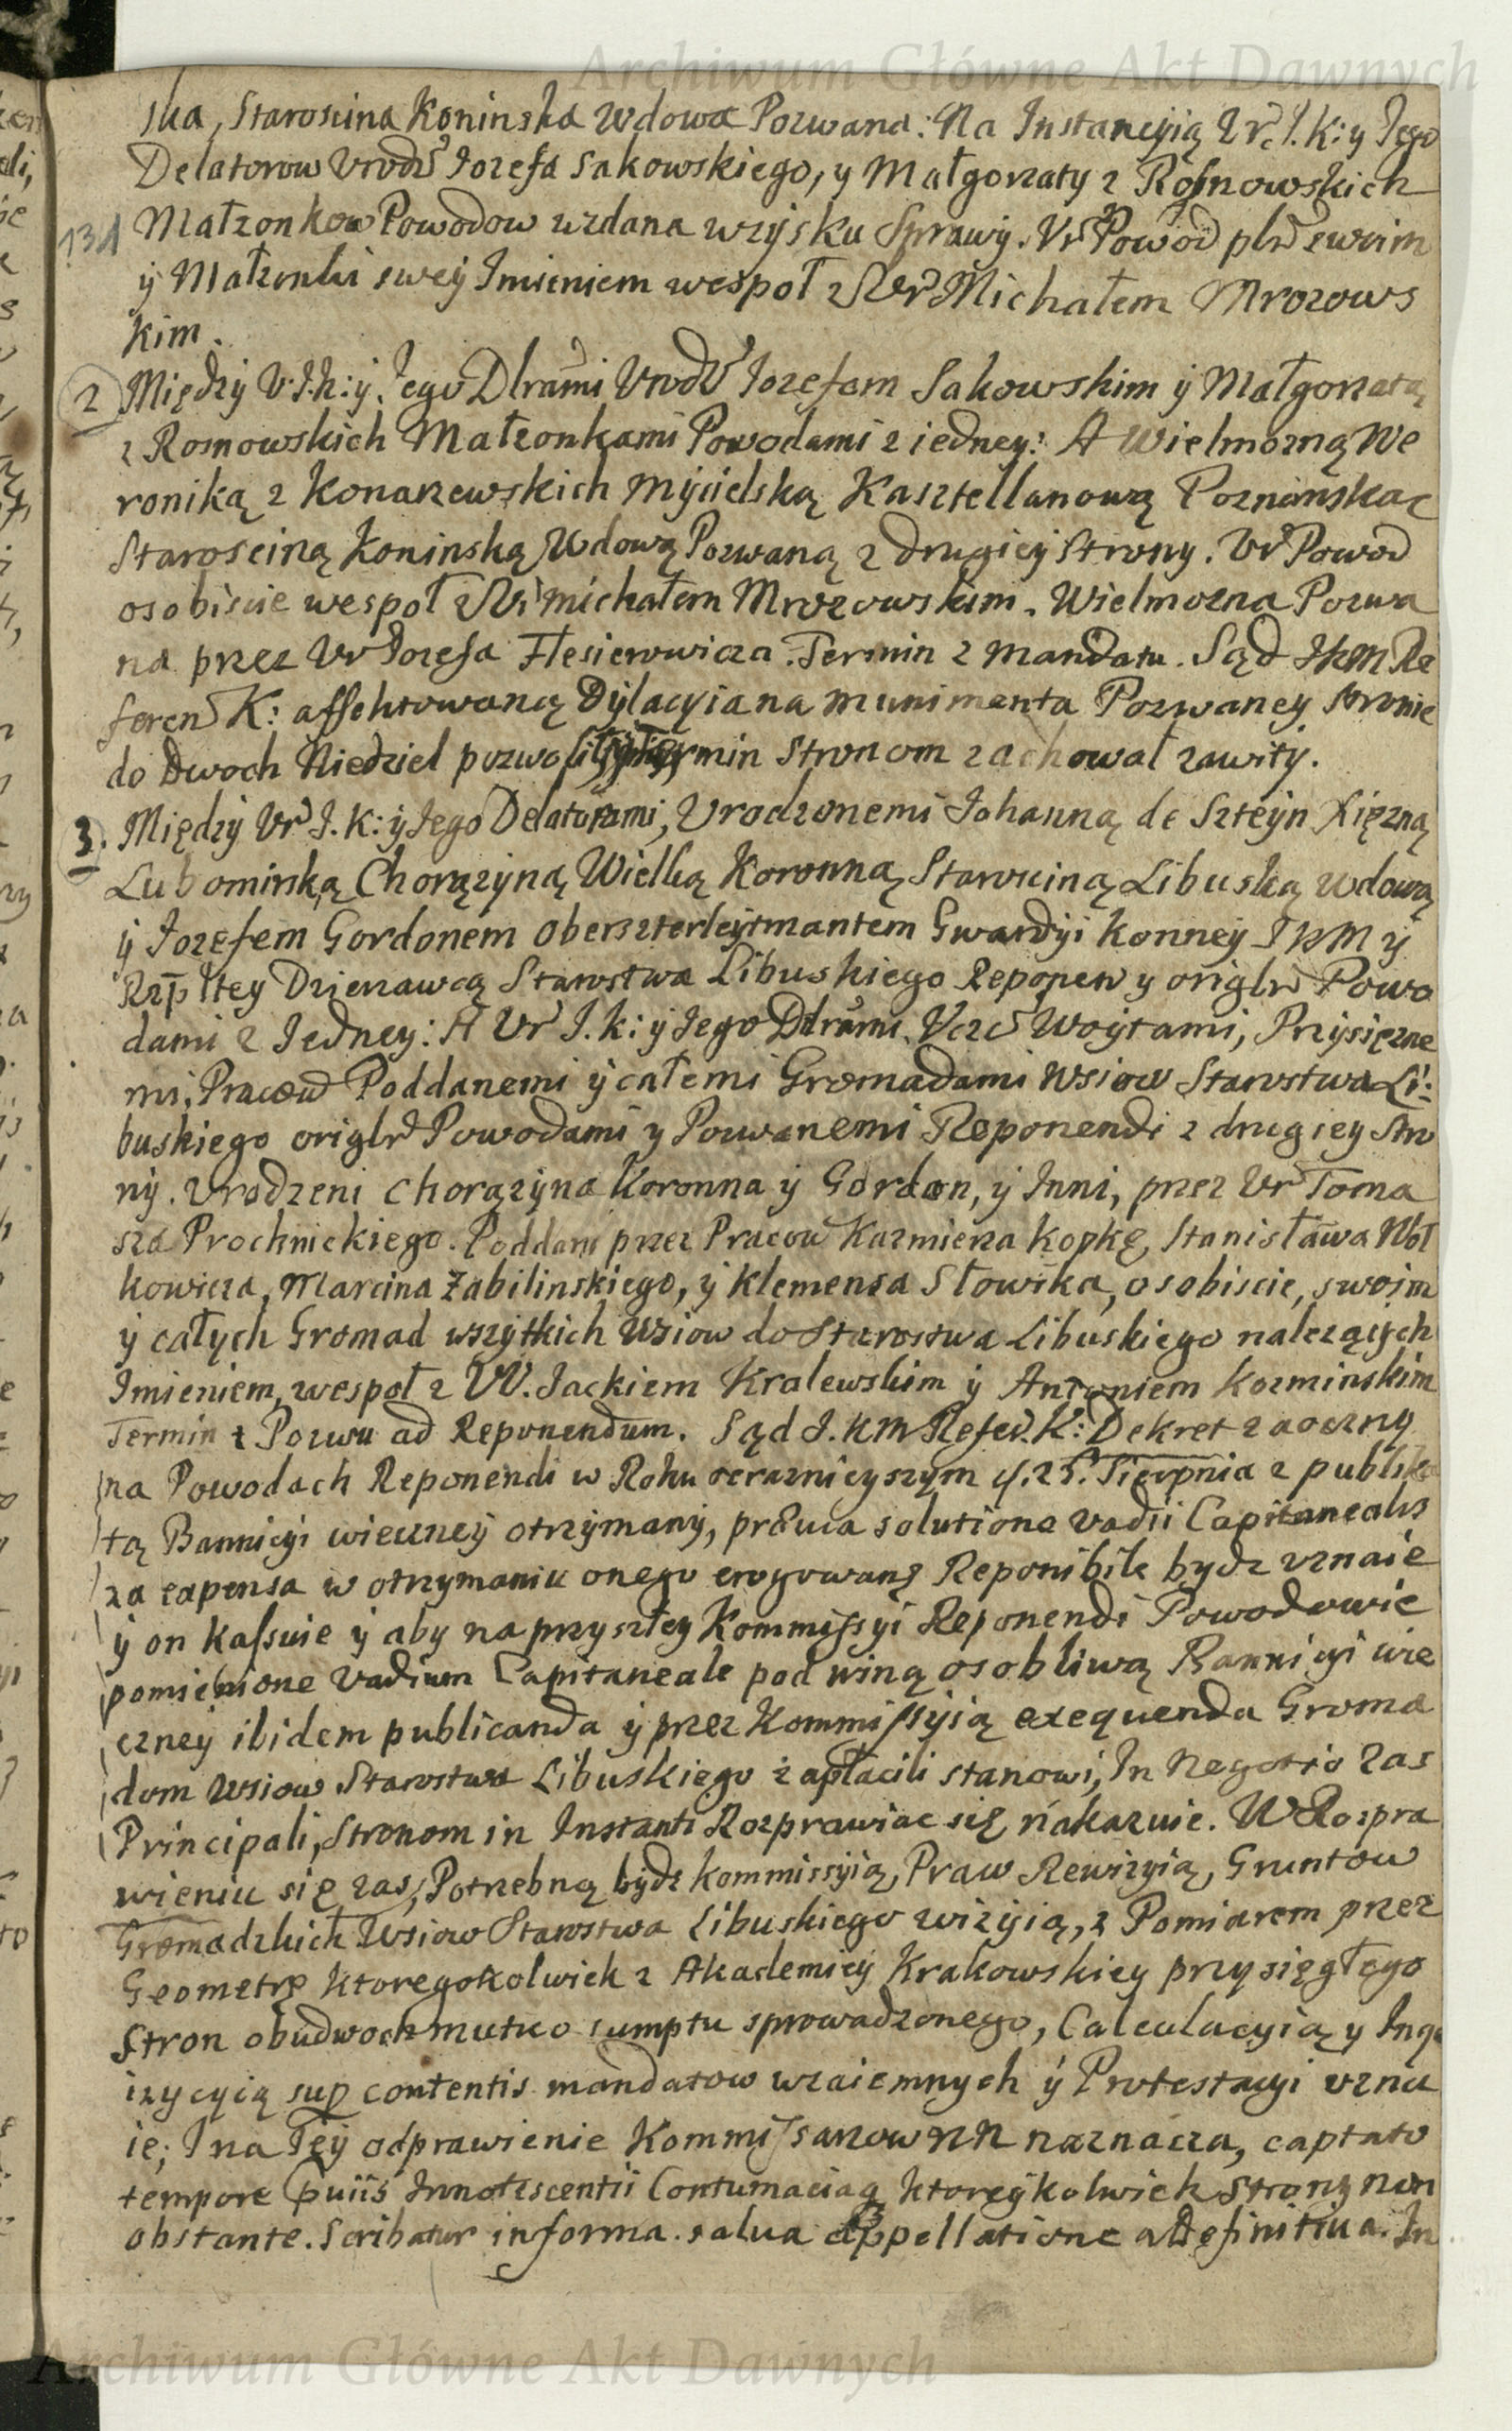 Archiwum Główne Akt Dawnych
ska, Staroscina Koninska Wdowa Pozwana. Na Instancyią Ur. I. K: y Jego
Delatorow Urodz Jozefa Sakowskiego, y Małgorzaty z Rosnowskich
131 Małzonkow Powodow wzdana wzysku Sprawy. Ur Powod swoim
ÿ Małzonki swey Imieniem wespoł z Ur Michałem Mrozows
kim.
2 Między U. I. K: ÿ Jego Dlrami Urodz Jozefem Sakowskim ÿ Małgorzatą
z Rosnowskich Małzonkami Powodami z iedney: A Wielmozną We
roniką z Konarzewskich Mycielską Kasztellanową Poznanską
Staroscina Koninską Wdową Pozwaną z drugiey Strony. Ur Powod
osobiscie wespoł z Ur Michałem Mrozowskim. Wielmozna Pozwa
na przez Ur Jozefa Flesierowicza. Termin z Mandatu. Sąd JKM Re
feren K: affektowaną Dylacyia na munimenta Pozwaney stronie
do Dwoch Niedziel pozwolił termin Stronom zachował zawity.
3. Między Ur I. K: ÿ Jego Delatorami, Urodzonemi Johanną de Szteyn Xięzną
Lubominską Chorązyną Wielką Koronną Starosciną Libuską Wdową
ÿ Jozefem Gordonem Oberszterleytmantem Gwardyi Konney JKM ÿ
Rzpltey Dzierzawcą Starostwa Libuskiego Reponen y origlr Powo
dami z Jedney: A Ur I. K: ÿ Jego Dlrami, Ucz Woytami, Przysięzne
mi, Pracow Poddanemi ÿ całemi Gromadami Wsiow Starostwa Li:
buskiego origlr Powodami y Pozwanemi Reponendi z drugiey Stro
ny. Urodzeni Chorązyna Koronna ÿ Gordon, ÿ Inni, przez Ur Toma
sza Prochnickiego. Poddani przez Pracow Kazmierza Kopkę, Stanisława
kowicza, Marcina Zabilinskiego, ÿ Klemensa Słowika, osobiscie, swoim
ÿ całych Gromad wszytkich Wsiow do Starostwa Libuskiego nalezących
Imieniem, wespoł z UU. Jackiem Kralewskim ÿ Antoniem Kozminskim
Termin z Pozwu ad Reponendum. Sąd J.KM Refer. K: Dekret zaoczny
na Powodach Reponendi w Roku teraznieyszym d. 25. Sierpnia z publika
tą Bannicyi wieczney otrzymany, prævia solutione vadii Capitanealis
za expensa w otrzymaniu onego erogowane Reponibile bydz uznaie
ÿ on kassuie ÿ aby na przyszłey Kommissyi Reponendi Powodowie
pomienione Vadium Capitaneale pod winą osobliwą Bannicyi wie
czney ibidem publicanda ÿ przez Kommissyią exequenda Groma
dom Wsiow Starostwa Libuskiego zapłacili stanowi, In Negotio zas
Principali, Stronom in Instanti Rozprawiac się nakazuie. W Rozpra
wieniu się zas, Potrzebną bydz Kommissyią, Praw Rewizyią, Gruntow
Gromadzkich Wsiow Starostwa Libuskiego wizyią, z Pomiarem przez
Geometrę ktoregokolwiek z Akademiey Krakowskiey przysięgłego
Stron obudwoch mutuo sumptu sprowadzonego, Calculacyią y Inqu
izycyią sup contentis mandatow wzaiemnych ÿ Protestacyi uznu
ie; Ina Tey odprawienie Kommissarzow NN naznacza, captato
tempore Innotescentii Contumacia ktoreykolwiek Strony non
obstante. Scribatur in forma salva appellatione a Definitiva. In
Archiwum Główne Akt Dawnych